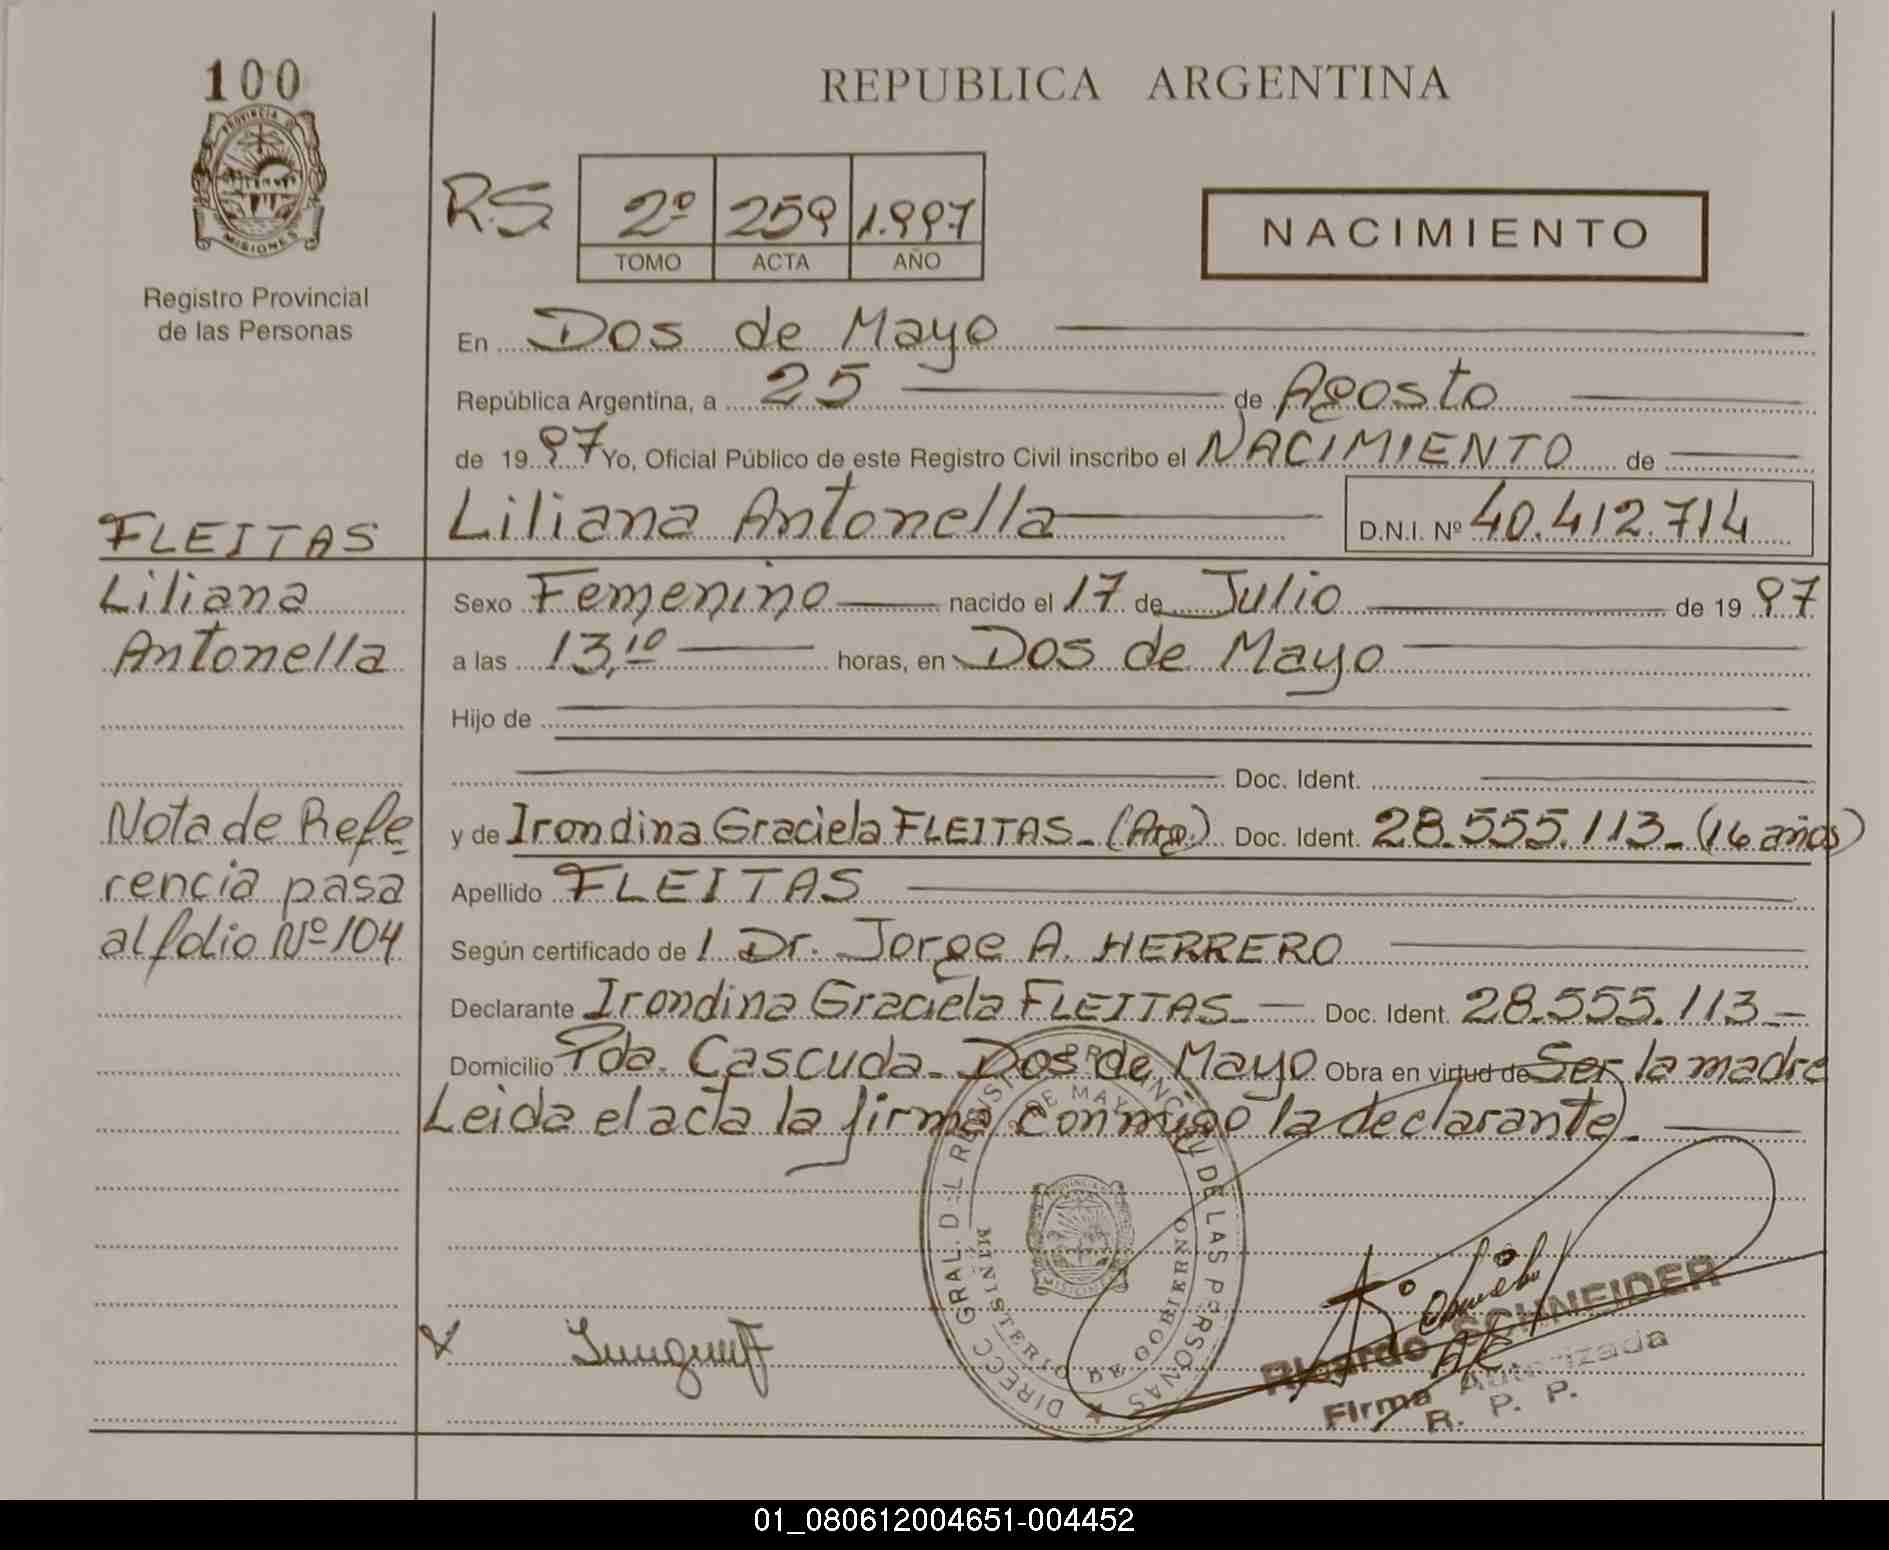 100
PROVINCIA DE
MISIONES
Registro Provincial
de las Personas
REPUBLICA ARGENTINA
R.S. 2º 259 1.997
TOMO ACTA AÑO
NACIMIENTO
En Dos de Mayo
República Argentina, a 25 de Agosto
de 1997 Yo, Oficial Público de este Registro Civil inscribo el NACIMIENTO de
Liliana Antonella D.N.I. Nº 40.412.714
FLEITAS
Liliana
Antonella
Nota de Refe
rencia pasa
al folio Nº 104
Sexo Femenino nacido el 17 de Julio de 1997
a las 13,10 horas, en Dos de Mayo
Hijo de
Doc. Ident.
y de Irondina Graciela FLEITAS_ (Arg.) Doc. Ident. 28.555.113_ (16 años)
Apellido FLEITAS
Según certificado de 1 Dr. Jorge A. HERRERO
Declarante Irondina Graciela FLEITAS_ Doc. Ident. 28.555.113_
Domicilio Pda. Cascuda_ Dos de Mayo Obra en virtud de Ser la madre
Leida el acta la firma conmigo la declarante_
DIRECC GRAL. DEL REGIST PROVINCIAL DE LAS PERSONAS
MINISTERIO DE GOBIERNO
DE MAYO
Ricardo SCHNEIDER
Firma Autorizada
R. P. P.
01_080612004651-004452